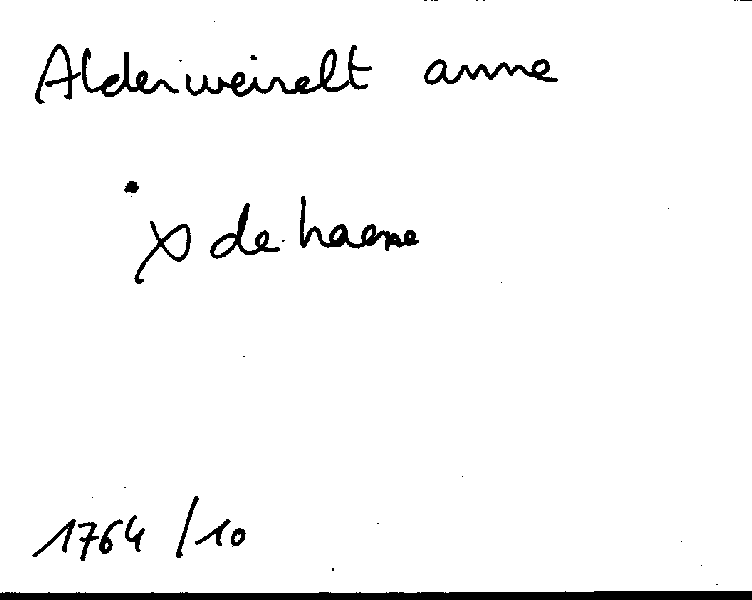 Alderweirelt anne
x de haene
1764 / 10